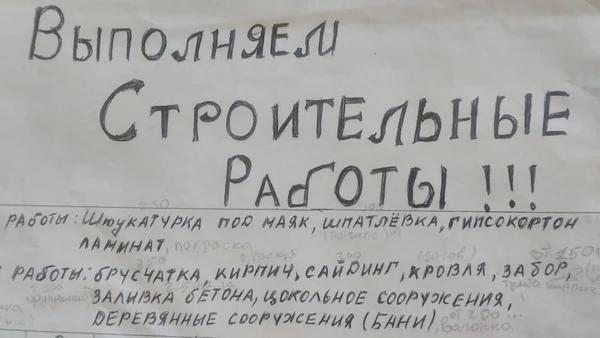 Выполняем
Строительные
Работы !!!
РАБОТЫ: ШТУКАТУРКА ПОД МАЯК, ШПАТЛЁВКА, ГИПСОКОРТОН
ЛАМИНАТ, покраска
РАБОТЫ: БРУСЧАТКА, КИРПИЧ, САЙДИНГ, КРОВЛЯ, ЗАБОР,
ЗАЛИВКА БЕТОНА, ЦОКОЛЬНОЕ СООРУЖЕНИЯ,
ДЕРЕВЯННЫЕ СООРУЖЕНИЯ (БАНИ), вагонка